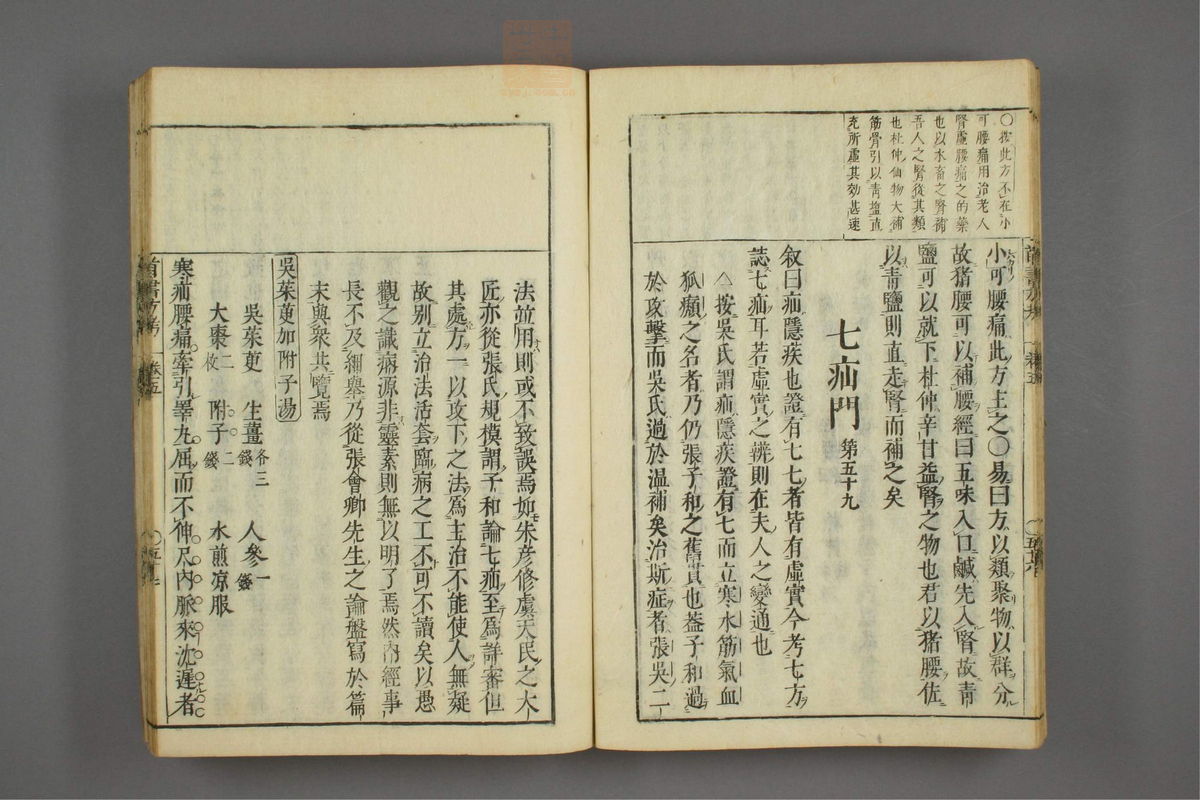 ○按此方不在小
可腰痛用治老人
腎虛腰痛之的藥
也以水畜之腎補
吾人之腎從其類
也杜仲仙物大補
筋骨引以青塩直
充所虛其効甚速
小可腰痛此方主之○易曰方以類聚物以群分
故猪腰可以補腰經曰五味入口鹹先入腎故青
鹽可以就下杜仲辛甘益腎之物也君以猪腰佐
以青鹽則直走腎而補之矣
七疝門 第五十九
叙曰疝隱疾也證有七七者皆有虛實今考七方
誌七疝耳若虛實之辨則在夫人之變通也
△按吳氏謂疝隱疾證有七而立寒水筋氣血
狐癩之名者乃仍張子和之舊貫也蓋子和過
於攻擊而吳氏過於溫補矣治斯症者張吳二
法並用則或不致誤焉如朱彦修虞天民之大
匠亦從張氏規模謂子和論七疝至爲詳審但
其處方一以攻下之法爲主治不能使人無疑
故别立治法活套臨病之工不可不讀矣以愚
觀之識病源非靈素則無以明了焉然内經事
長不及細舉乃從張會卿先生之論盤寫於篇
末與衆共覽焉
吳茱萸加附子湯
吳茱萸 生薑各三錢 人參一錢
大棗二枚 附子二錢 水煎凉服
寒疝腰痛牽引睪丸屈而不伸尺内脈來沈遲者